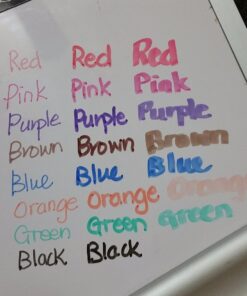 Red Red Red
Pink Pink Pink
Purple Purple Purple
Brown Brown Brown
Blue Blue Blue
Orange Orange Orange
Green Green Green
Black Black